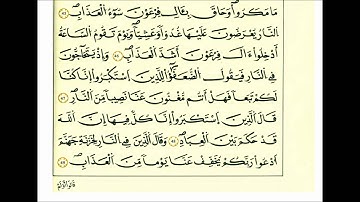 مَا مَكَرُوا۟ وَحَاقَ بِـَٔالِ فِرْعَوْنَ سُوٓءُ ٱلْعَذَابِ ٤٥
ٱلنَّارُ يُعْرَضُونَ عَلَيْهَا غُدُوًّا وَعَشِيًّا وَيَوْمَ تَقُومُ ٱلسَّاعَةُ
أَدْخِلُوٓا۟ ءَالَ فِرْعَوْنَ أَشَدَّ ٱلْعَذَابِ ٤٦ وَإِذْ يَتَحَآجُّونَ
فِى ٱلنَّارِ فَيَقُولُ ٱلضُّعَفَٰٓؤُا۟ لِلَّذِينَ ٱسْتَكْبَرُوٓا۟ إِنَّا كُنَّا
لَكُمْ تَبَعًا فَهَلْ أَنتُم مُّغْنُونَ عَنَّا نَصِيبًا مِّنَ ٱلنَّارِ ٤٧
قَالَ ٱلَّذِينَ ٱسْتَكْبَرُوٓا۟ إِنَّا كُلٌّ فِيهَآ إِنَّ ٱللَّهَ
قَدْ حَكَمَ بَيْنَ ٱلْعِبَادِ ٤٨ وَقَالَ ٱلَّذِينَ فِى ٱلنَّارِ لِخَزَنَةِ جَهَنَّمَ
ٱدْعُوا۟ رَبَّكُمْ يُخَفِّفْ عَنَّا يَوْمًا مِّنَ ٱلْعَذَابِ ٤٩